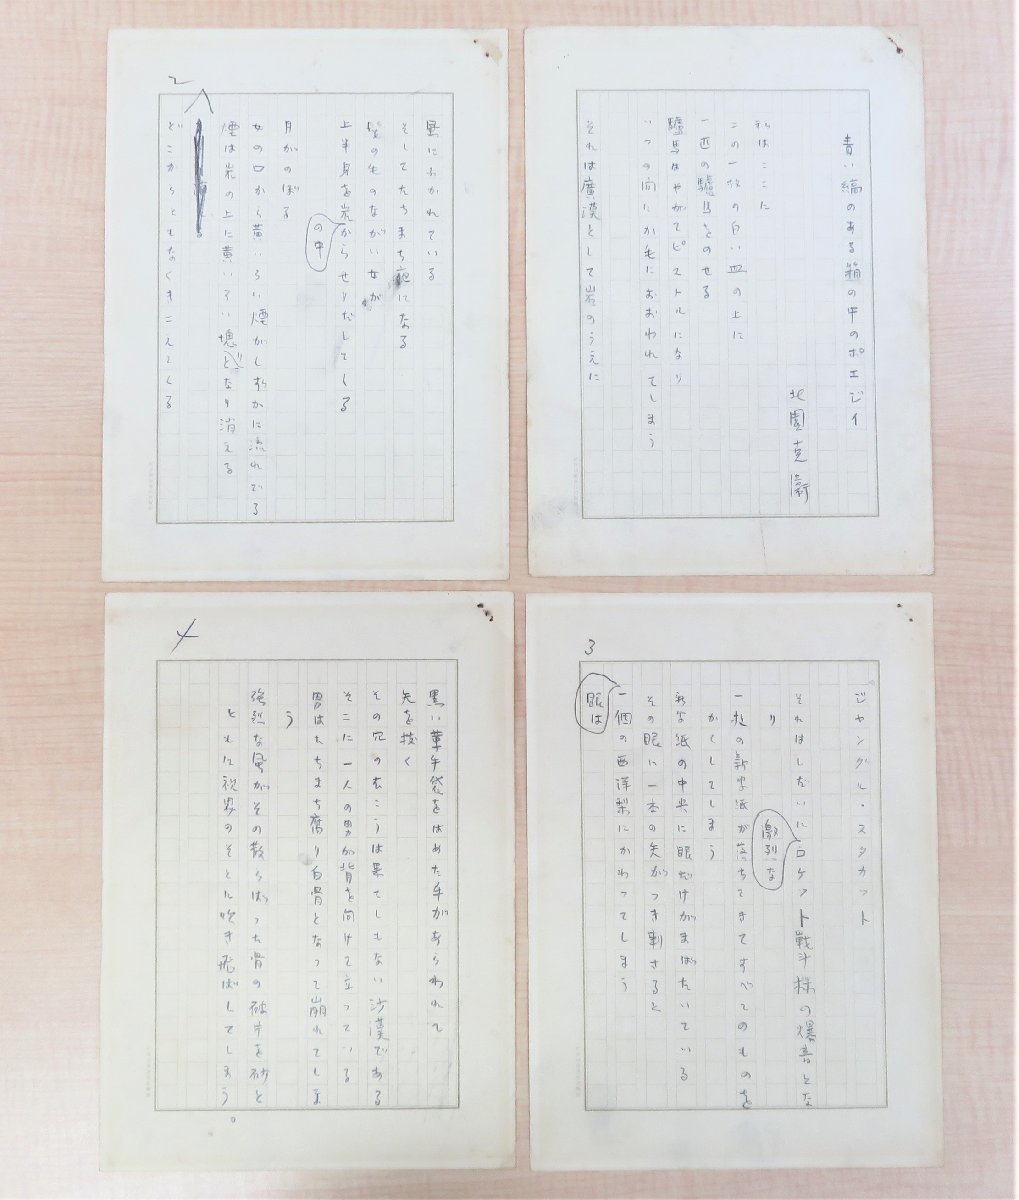 青い縞のある箱の中のポエジイ
北園克衛
私はここに
この一枚の白い皿の上に
一匹の驢馬をのせる
驢馬はやがてピストルになり
いつの間にか毛におおわれてしまう
それは廣漠として岩のうえに
2
風にふかれている
そしてたちまち
になる
髪の毛のながい女が
上半身を炭からせりだしてくる
の中
月がのぼる
女の口から黄いろい煙がしずかに流れでる
煙は炭の上に黄いろい塊となり消える
どこからともなくきこえてくる
3
ジャングル・スタカット
それはしだいにロケット戦斗機の爆音とな
り
激烈な
一枚の新聞紙が落ちてきてすべてのものを
かくしてしまう
新聞紙の中央に眼だけがまばたいている
その眼に一本の矢がつき刺さると
一個の西洋梨にかわってしまう
眼は
4
黒い革手袋をはめた手があらわれて
矢を抜く
その穴のむこうは果てしもない沙漠である
そこに一人の男が背を向けて立っている
男はたちまち腐り白骨となって崩れてしま
う
強烈な風がその散らばった骨の破片を砂と
ともに視界のそとに吹き飛ばしてしまう。